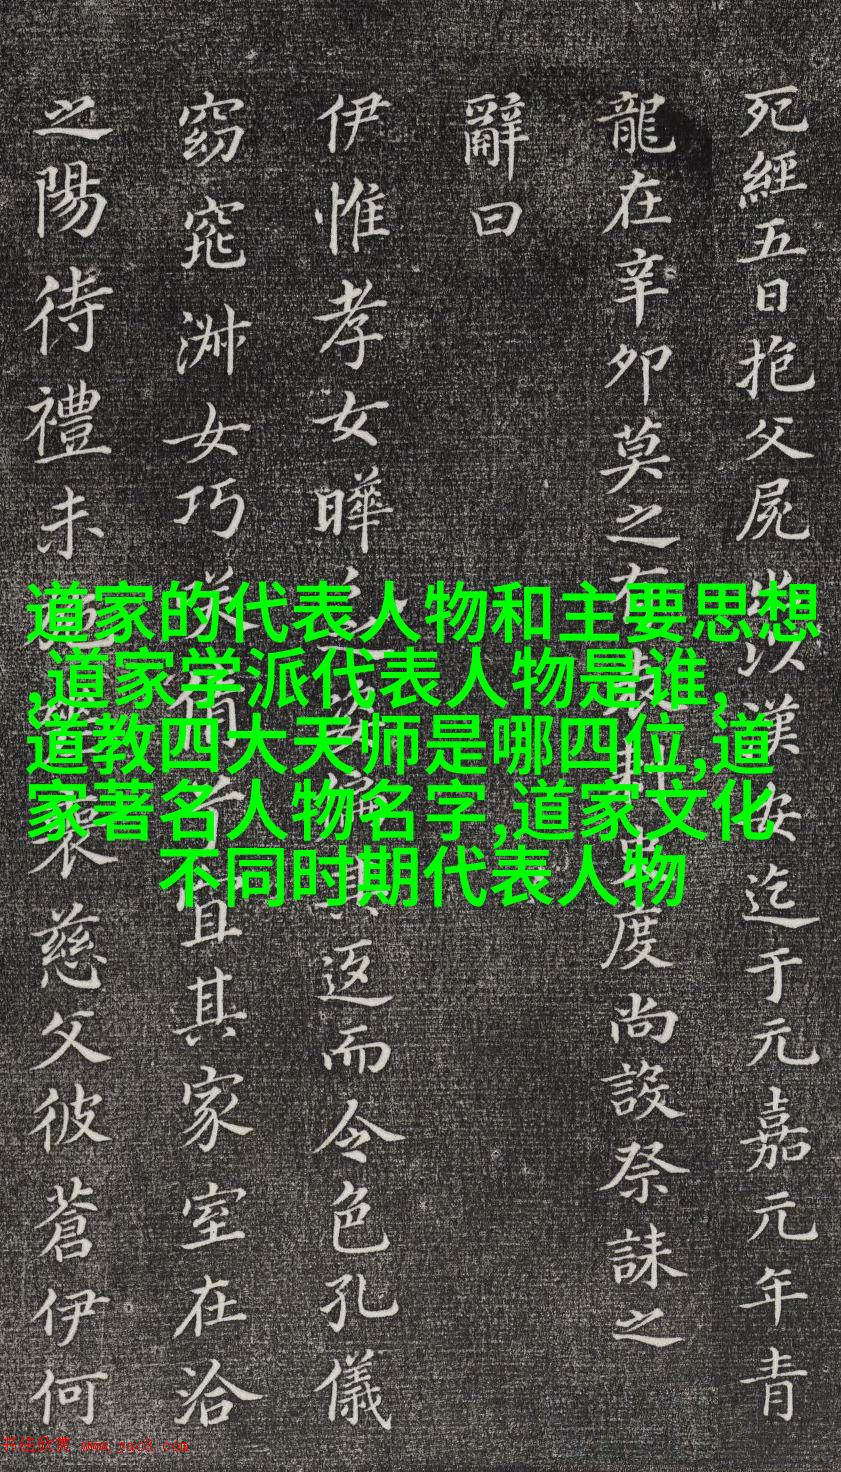 死經五日抱父屍出以漢安迄于元嘉元年青
龍在辛卯莫之有表度尚設祭誄之
辭曰
伊惟孝女曄之姿偏其返而令色孔儀
窈窕淑女巧笑倩兮宜其家室在洽
之陽待禮未施喪慈父彼蒼伊何
道家的代表人物和主要思想
,道家学派代表人物是谁,
道教四大天师是哪四位,道
家著名人物名字,道家文化
不同时期代表人物
书法欣赏 www.yac8.com